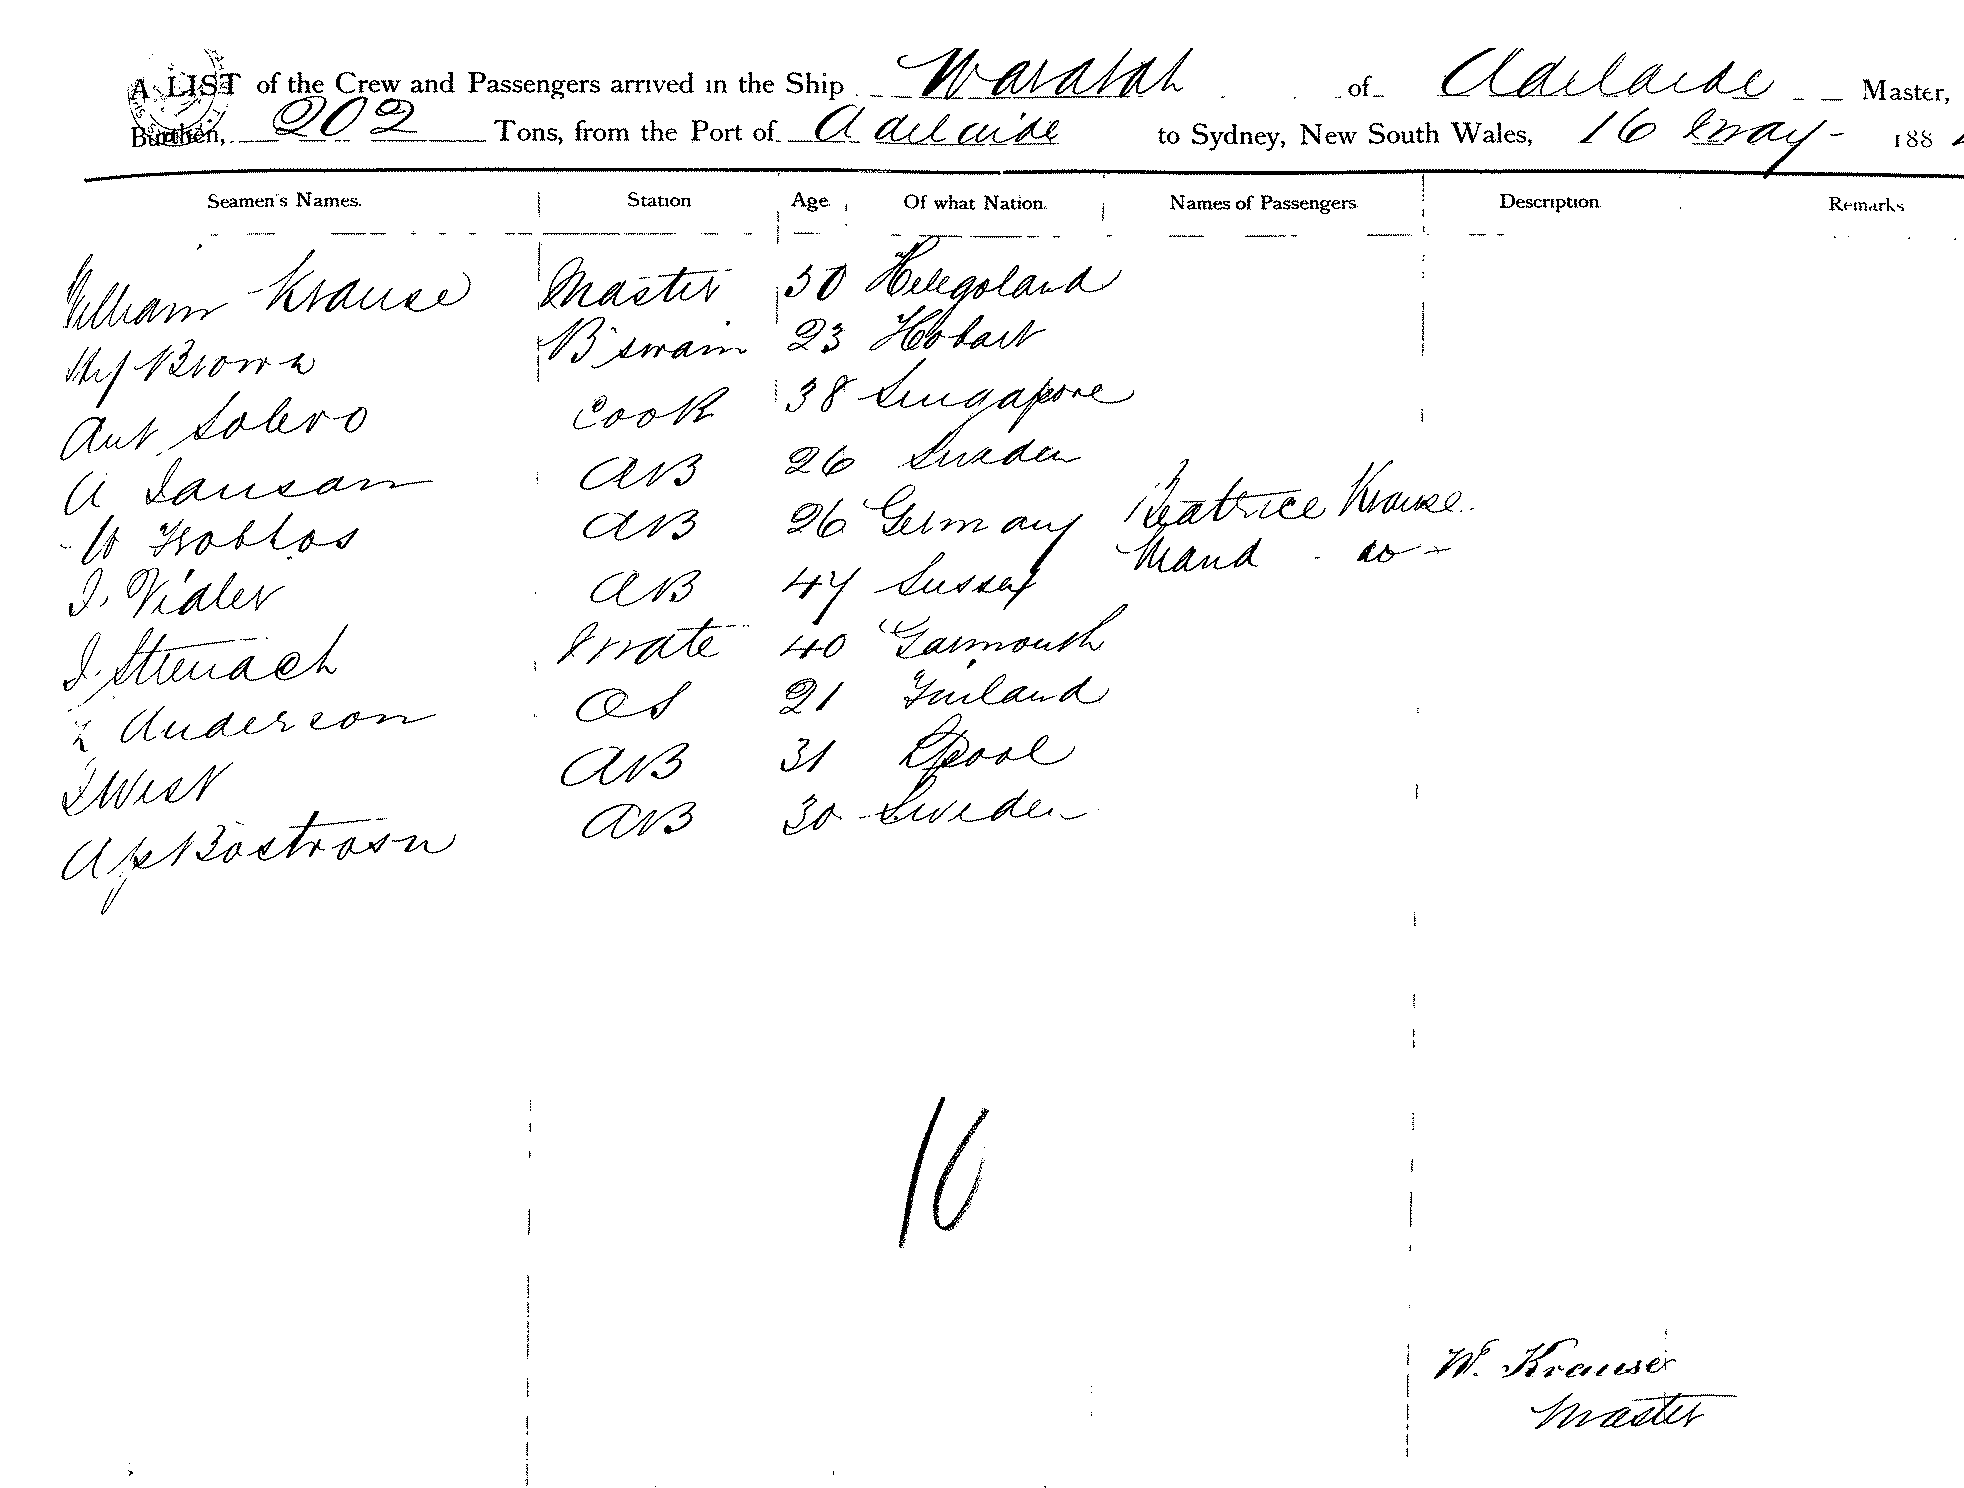 A LIST of the Crew and Passengers arrived in the Ship Waratah of Adelaide Master,
Burthen, 202 Tons, from the Port of Adelaide to Sydney, New South Wales, 16 May 188
Seamen's Names. Station Age Of what Nation. Names of Passengers Description Remarks
William Krause Master 30 Helegoland
Hy Brown B'swain 23 Hobart
Ant Solero Cook 38 Singapore
A Jansan AB 26 Sweden
W AB 26 Germany Beatrice Krause
Maud do
J. Vidler AB 47 Sussex
J. Mate 40 Yarmouth
Anderson OS 21 Finland
J West AB 31 Lpool
A Bostrosn AB 30 Sweden
10
W. Krause
Master